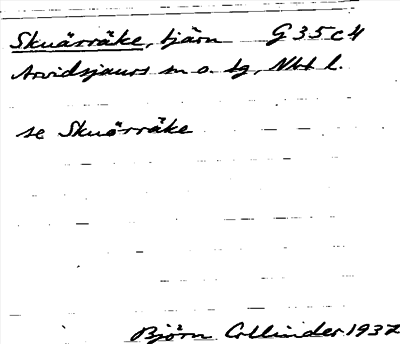 Skuärräke, tjärn G 35 c 4
Arvidsjaurs sn o. tg, Nbt l.
se Skuärräke
Björn Collinder 1937